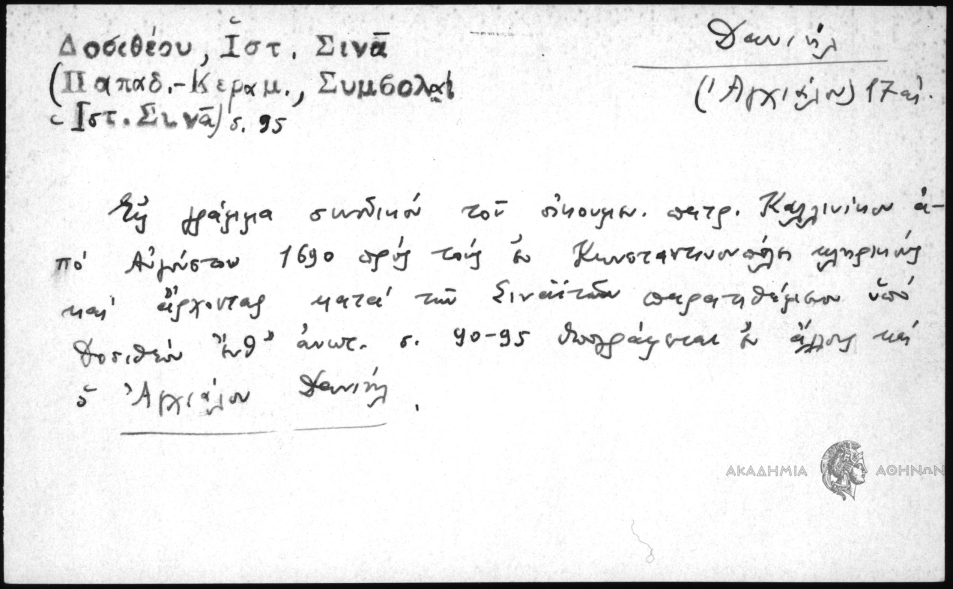 Δοσιθέου, Ἱστ. Σινᾶ
(Παπαδ.-Κεραμ., Συμβολαὶ
Ἱστ. Σινᾶ) σ. 95
Δανιήλ
(Ἀγχιάλου) 17 αἰ.
Εἰς γράμμα συνοδικὸν τοῦ οἰκουμεν. πατρ. Καλλινίκου ἀ-
πὸ Αὐγούστου 1690 πρὸς τοὺς ἐν Κωνσταντινουπόλει κληρικοὺς
καὶ ἄρχοντας κατὰ τῶν Σιναϊτῶν παρατιθέμενον ὑπὸ
Δοσιθέου ἔνθ' ἀνωτ. σ. 90-95 ὑπογράφεται ἐν ἄλλοις καὶ
ὁ Ἀγχιάλου Δανιήλ.
ΑΚΑΔΗΜΙΑ ΑΘΗΝΩΝ